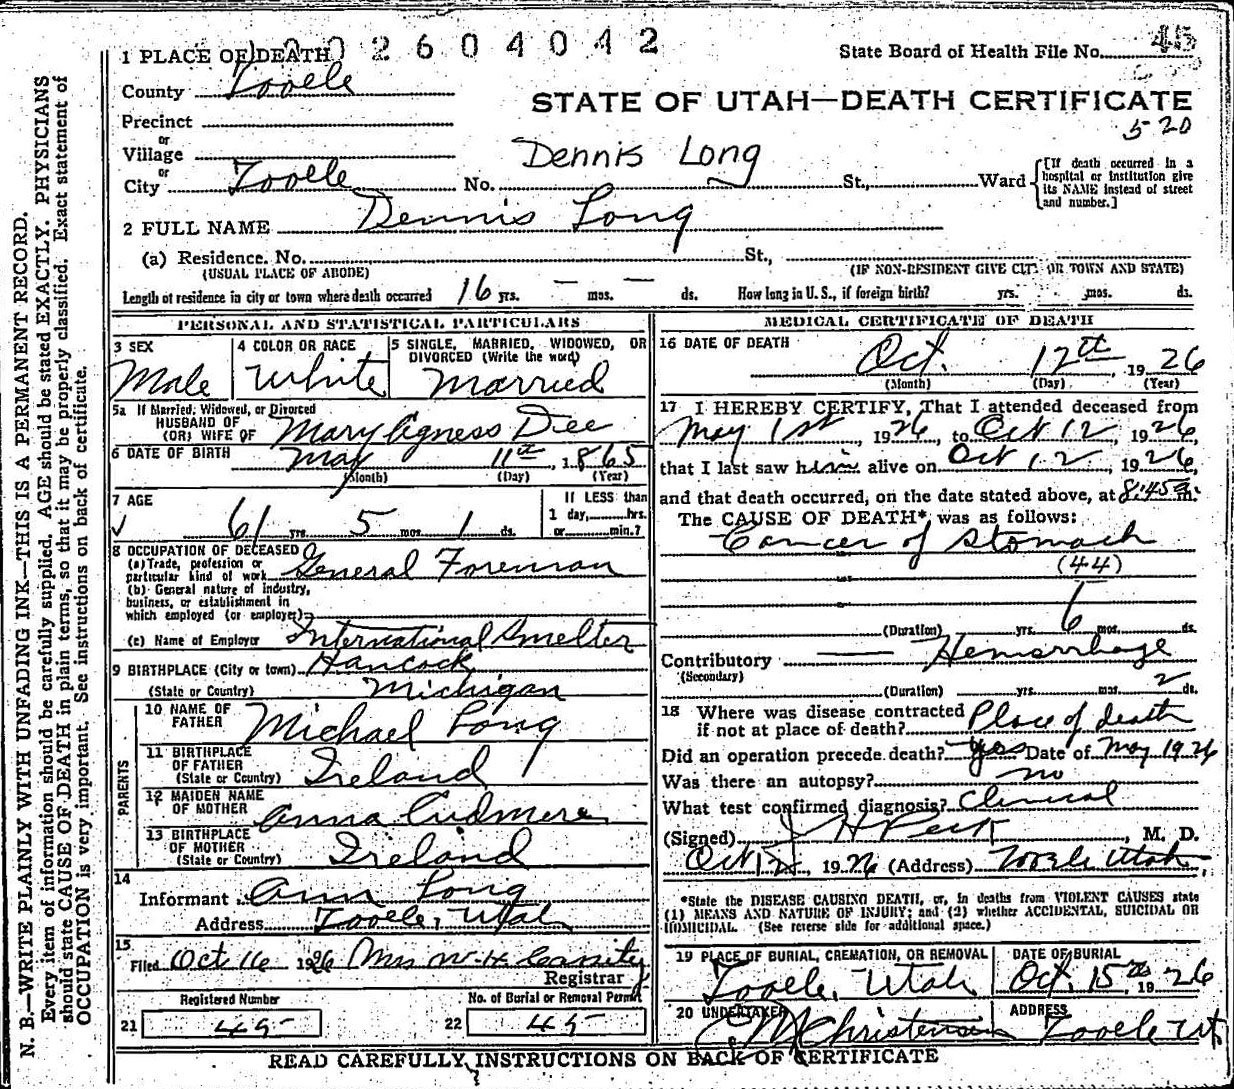 1 PLACE OF DEATH 1002604042 State Board of Health File No. 45
County Tooele
STATE OF UTAH—DEATH CERTIFICATE
Precinct
5-20
or
Village
Dennis Long
or
City Tooele No. St., Ward [If death occurred in a hospital or institution give its NAME instead of street and number.]
2 FULL NAME Dennis Long
(a) Residence. No. St.,
(USUAL PLACE OF ABODE) (IF NON-RESIDENT GIVE CITY OR TOWN AND STATE)
Length of residence in city or town where death occurred 16 yrs. — mos. — ds. How long in U. S., if foreign birth? yrs. mos. ds.
PERSONAL AND STATISTICAL PARTICULARS
3 SEX 4 COLOR OR RACE 5 SINGLE, MARRIED, WIDOWED, OR
DIVORCED (Write the word)
Male White Married
5a If Married, Widowed, or Divorced
HUSBAND OF
(OR) WIFE OF Mary Agness Dee
6 DATE OF BIRTH May 11th, 1865
(Month) (Day) (Year)
7 AGE If LESS than
1 day, hrs.
61 yrs. 5 mos. 1 ds. or min.?
8 OCCUPATION OF DECEASED
(a) Trade, profession or
particular kind of work General Foreman
(b) General nature of industry,
business, or establishment in
which employed (or employer)
(c) Name of Employer International Smelter
9 BIRTHPLACE (City or town) Hancock
(State or Country) Michigan
PARENTS
10 NAME OF
FATHER Michael Long
11 BIRTHPLACE
OF FATHER
(State or Country) Ireland
12 MAIDEN NAME
OF MOTHER Anna Cudmere
13 BIRTHPLACE
OF MOTHER
(State or Country) Ireland
14
Informant Ann Long
Address Tooele, Utah
15
Filed Oct 16 1926 Mrs W. H. Cassity
Registrar
Registered Number No. of Burial or Removal Permit
21 45 22 45
MEDICAL CERTIFICATE OF DEATH
16 DATE OF DEATH Oct. 12th, 1926
(Month) (Day) (Year)
17 I HEREBY CERTIFY, That I attended deceased from
May 1st, 1926, to Oct 12, 1926,
that I last saw him alive on Oct 12, 1926,
and that death occurred, on the date stated above, at 8:45 a m.
The CAUSE OF DEATH* was as follows:
Cancer of Stomach
(44)
(Duration) yrs. 6 mos. ds.
Contributory Hemorrhage
(Secondary)
(Duration) yrs. mos. 2 ds.
18 Where was disease contracted
if not at place of death? Place of death
Did an operation precede death? yes Date of May 1926
Was there an autopsy? no
What test confirmed diagnosis? Clinical
(Signed) J H Peck, M. D.
Oct 12, 1926 (Address) Tooele Utah,
*State the DISEASE CAUSING DEATH, or, in deaths from VIOLENT CAUSES state
(1) MEANS AND NATURE OF INJURY; and (2) whether ACCIDENTAL, SUICIDAL OR
HOMICIDAL. (See reverse side for additional space.)
19 PLACE OF BURIAL, CREMATION, OR REMOVAL DATE OF BURIAL
Tooele, Utah Oct. 15th, 1926
20 UNDERTAKER ADDRESS
Christensen Tooele Ut.
READ CAREFULLY INSTRUCTIONS ON BACK OF CERTIFICATE
N. B.—WRITE PLAINLY WITH UNFADING INK—THIS IS A PERMANENT RECORD.
Every item of information should be carefully supplied. AGE should be stated EXACTLY. PHYSICIANS
should state CAUSE OF DEATH in plain terms, so that it may be properly classified. Exact statement of
OCCUPATION is very important. See instructions on back of certificate.